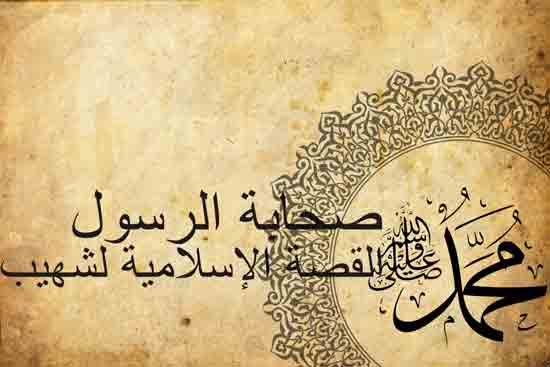 صحابة الرسول
القصة الإسلامية لشهيب
محمد
صلى الله عليه وسلم